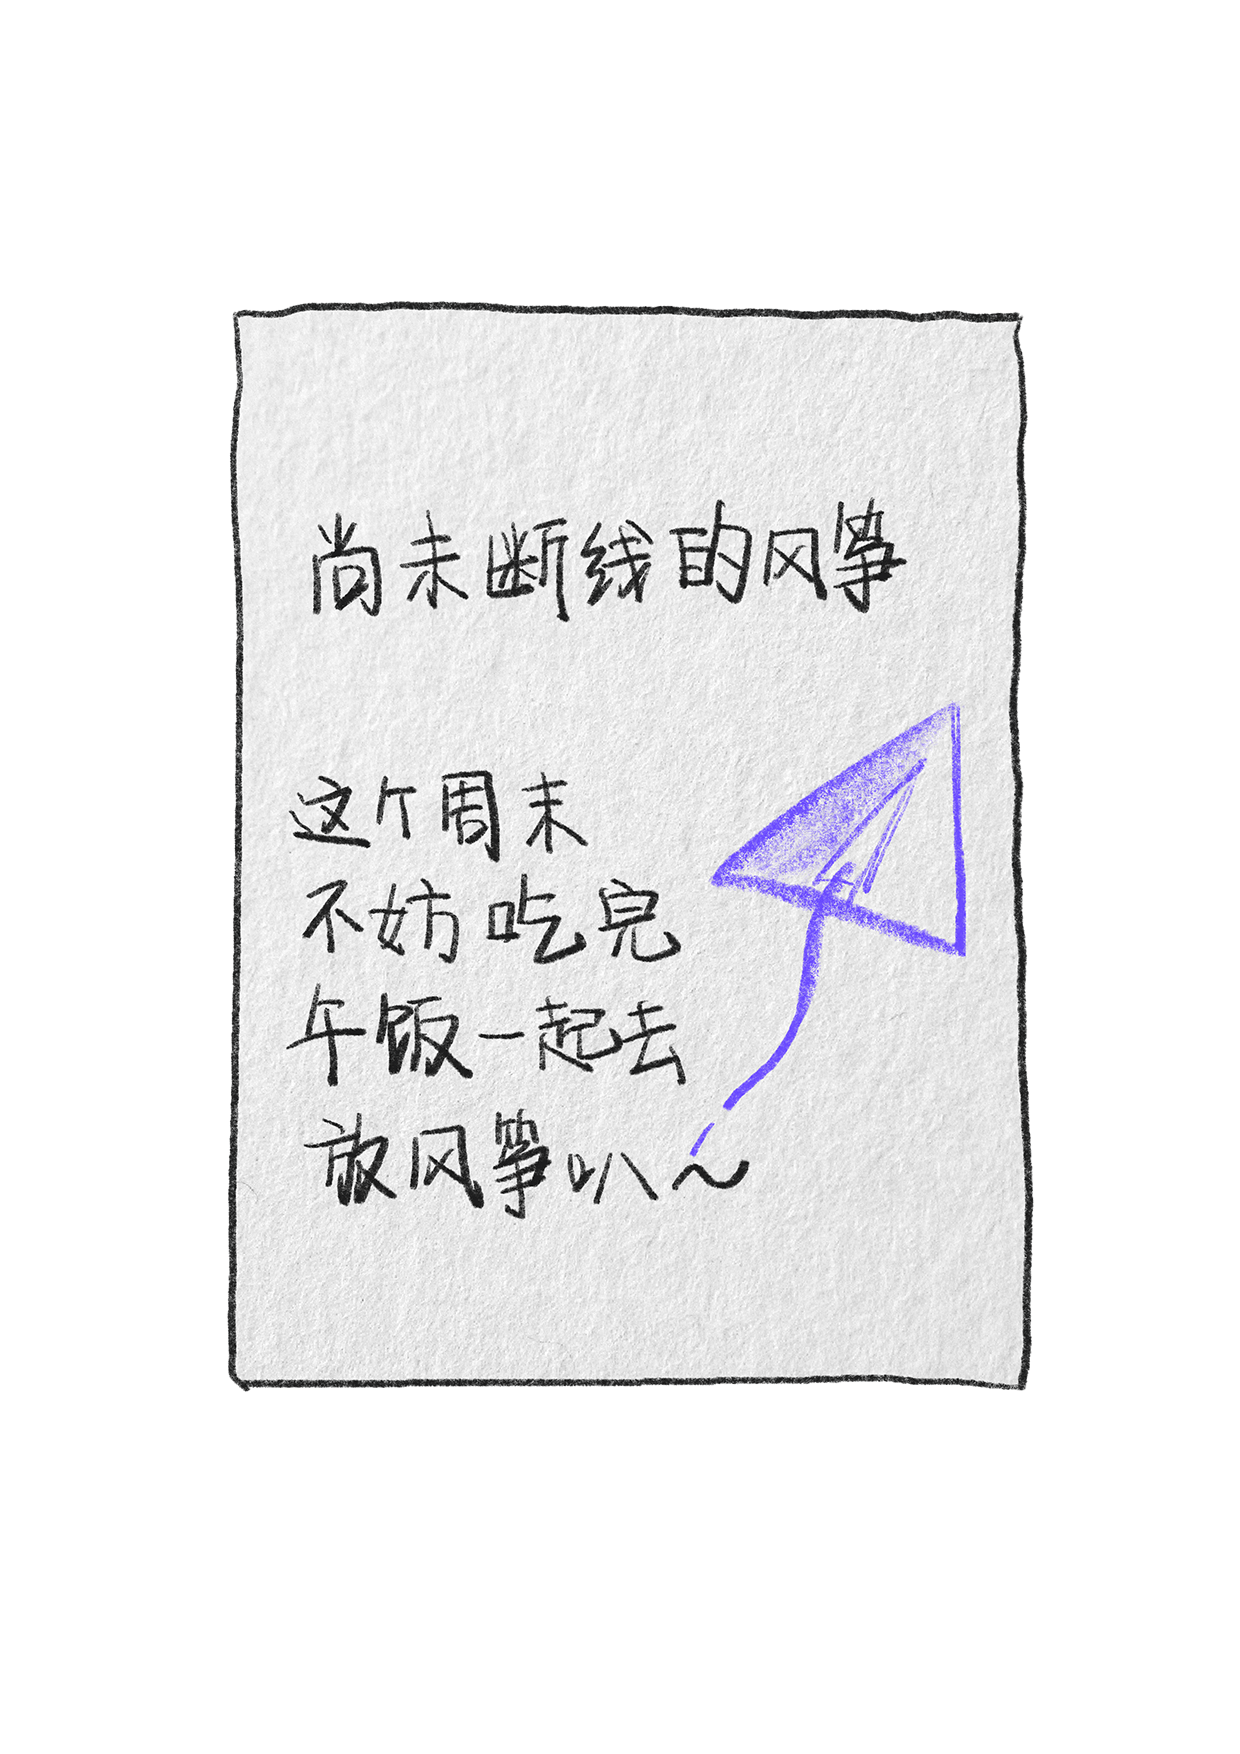 尚未断线的风筝
这个周末
不妨吃完
午饭一起去
放风筝叭～